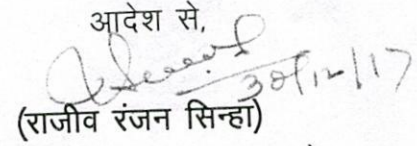 आदेश से,
30/12/17
(राजीव रंजन सिन्हा)